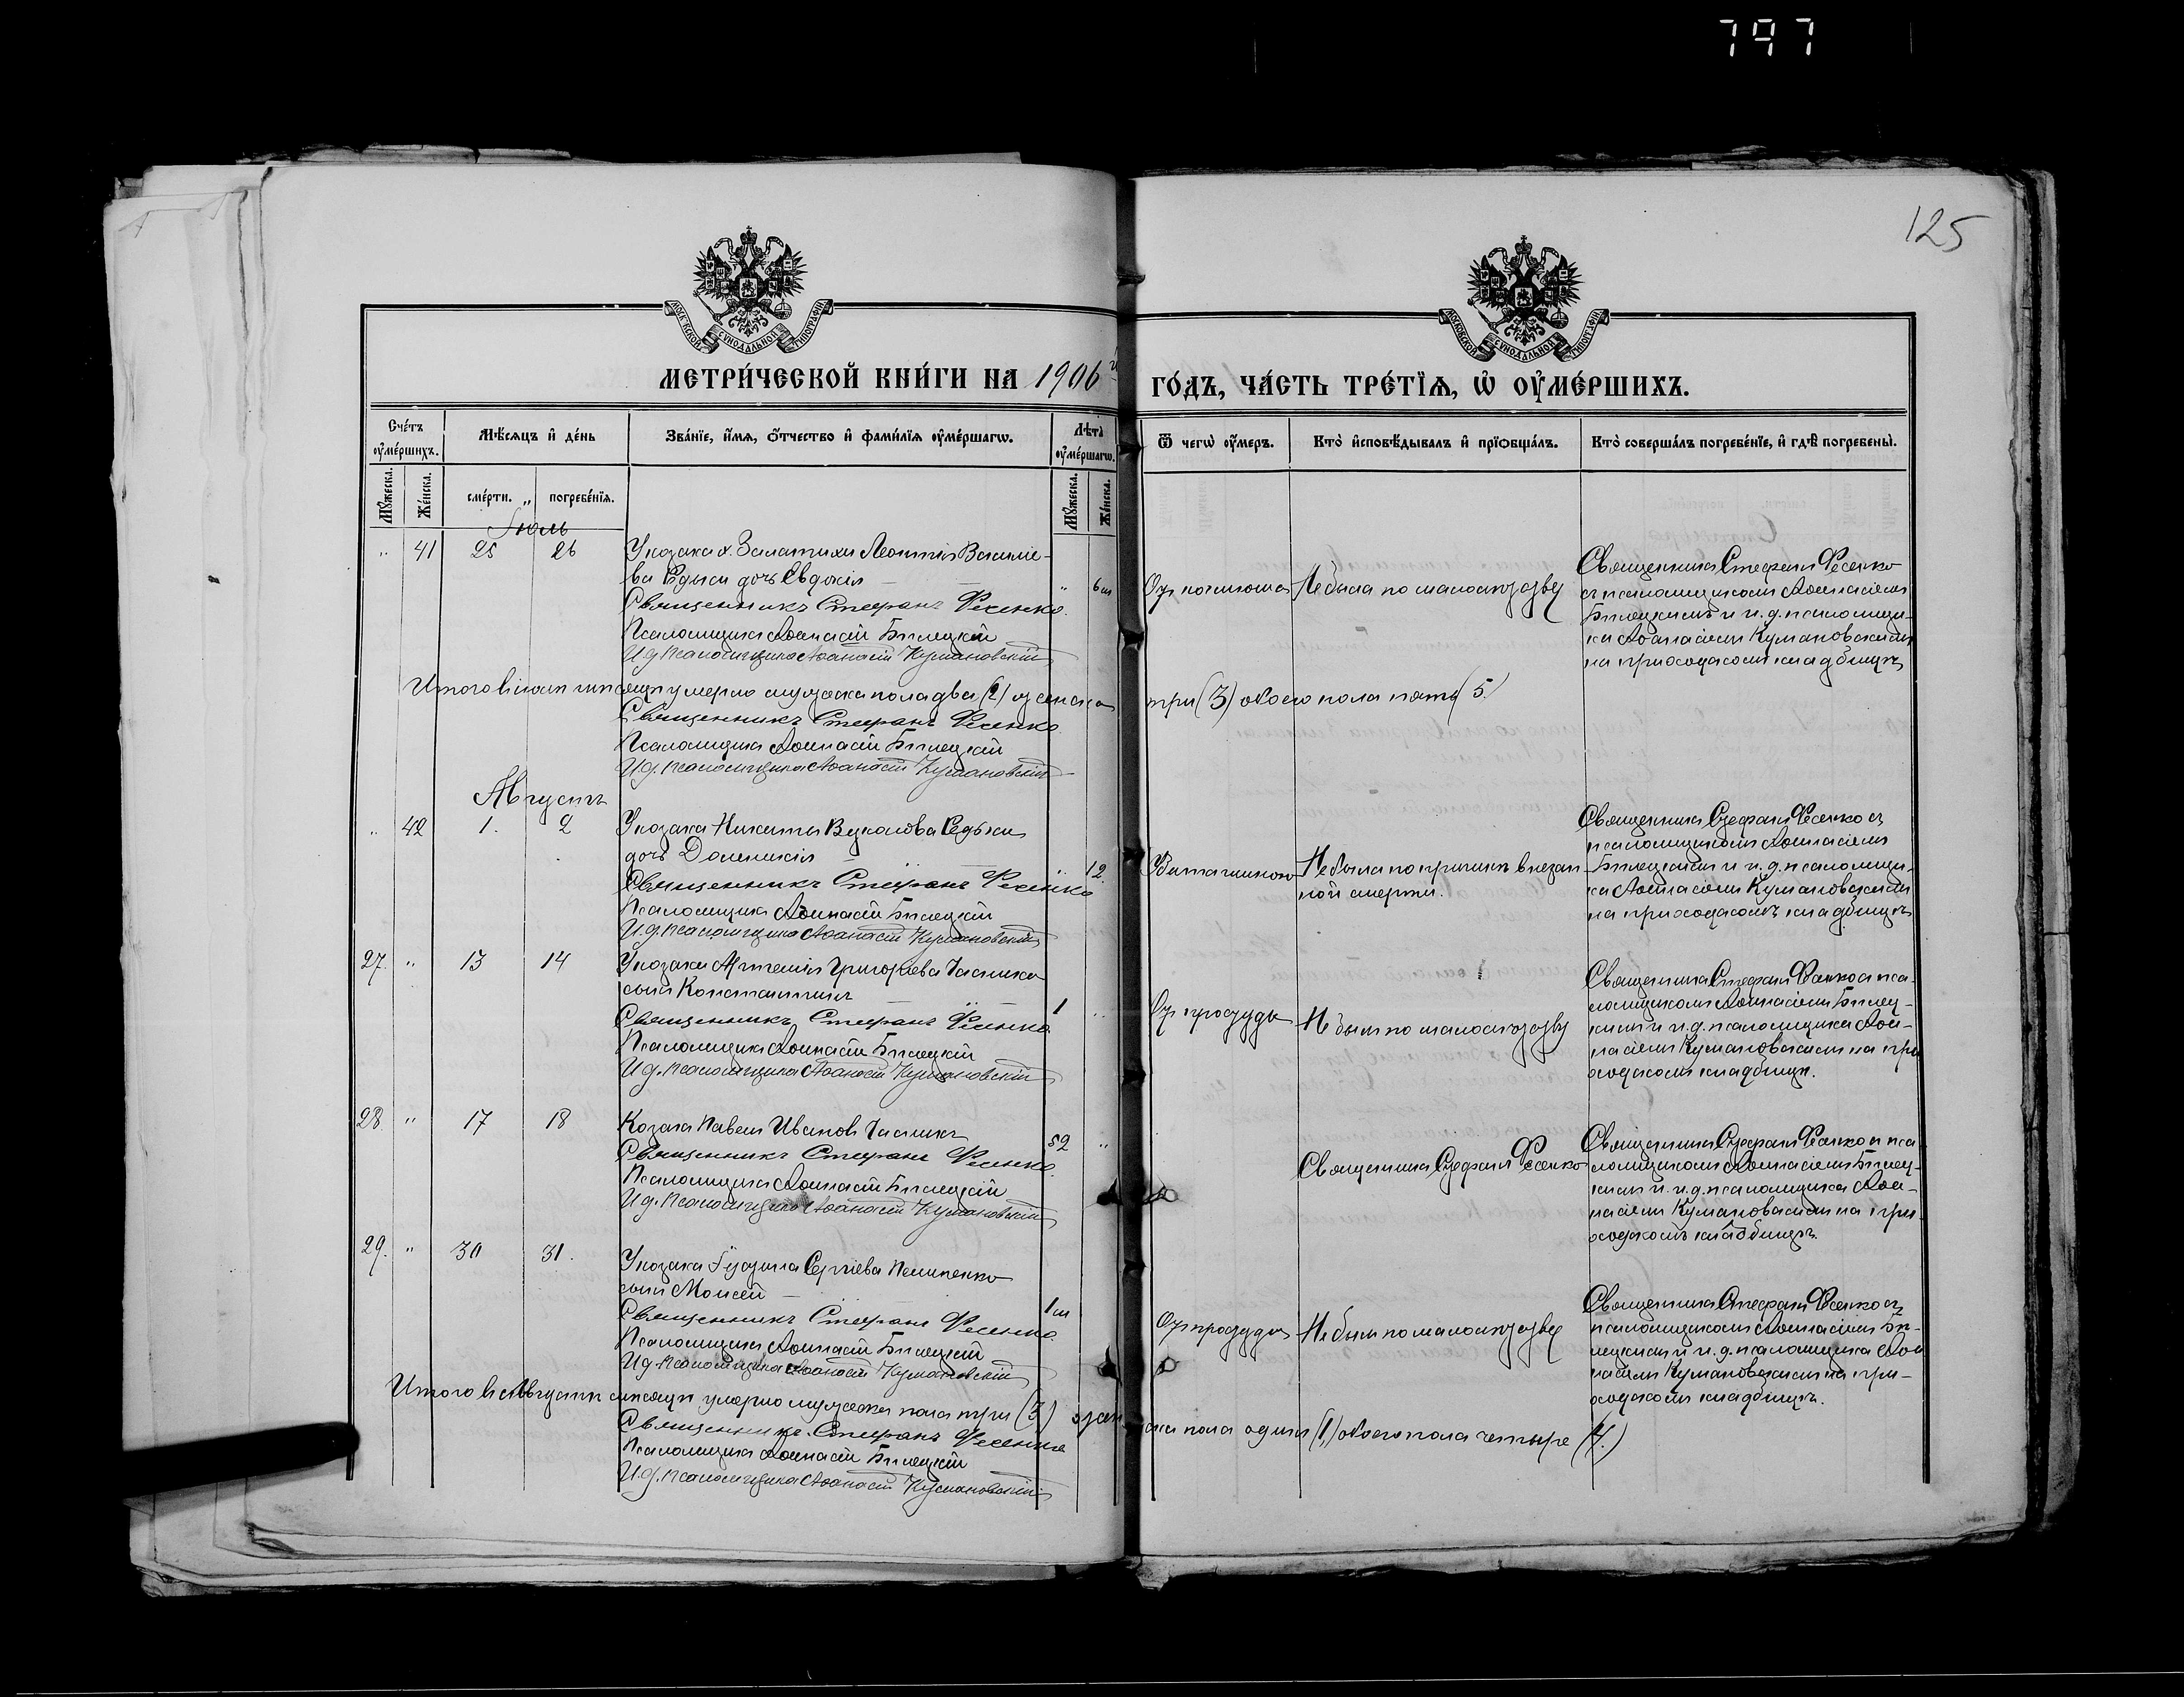 797
125
МОСКОВСКОЙ СѴНОДАЛЬНОЙ ТИПОГРАФІИ
МОСКОВСКОЙ СѴНОДАЛЬНОЙ ТИПОГРАФІИ
МЕТРИ́ЧЕСКОЙ КНИ́ГИ НА 1906й
ГО́ДЪ, ЧА́СТЬ ТРЕ́ТЇѦ, Ѡ҆ ОУ҆МЕ́РШИХЪ.
Сче́тъ оу҆ме́ршихъ.
Мѣ́сѧцъ и҆ де́нь
Зва́нїе, и҆́мѧ, ѻ҆́тчество и҆ фами́лїѧ оу҆ме́ршагѡ.
Лѣ́та̀ оу҆ме́ршагѡ.
Ѿ чегѡ̀ оу҆́меръ.
Кто̀ и҆сповѣ́дывалъ и҆ прїѡбща́лъ.
Кто̀ соверша́лъ погребе́нїе, и҆ гдѣ̀ погребены̀.
Мꙋ́жеска.
Же́нска.
сме́рти.
погребе́нїѧ.
Мꙋ́жеска.
Же́нска.
Іюль
" 41 25 26
У козака х. Залатихи Леонтія Василіе-
ва Едыси дочь Евдокія
" 6 м
Священникъ Стефанъ Фесенко.
Псаломщикъ Аѳанасій Бѣлецкій
И.д. Псаломщика Аѳанасій Кумановскій
Отъ поноса
Не была по малолѣтству
Священникъ Стефанъ Фесенко
съ псаломщикомъ Аѳанасіемъ
Бѣлецкимъ и и.д. псаломщи-
ка Аѳанасіемъ Кумановскимъ
на приходскомъ кладбищѣ
Итого въ Іюлѣ мѣсяцѣ умерло мужеска пола два (2) женска
три (3) обоего пола пять (5.)
Священникъ Стефанъ Фесенко
Псаломщикъ Аѳанасій Бѣлецкій
И.д. Псаломщика Аѳанасій Кумановскій
Августъ
" 42 1. 2
У козака Никиты Вуколова Седьки
дочь Домникія
" 12.
Священникъ Стефанъ Фесенко
Псаломщикъ Аѳанасій Бѣлецкій
И.д. Псаломщика Аѳанасій Кумановскій
Не была по причинѣ внезап-
ной смерти.
Священникъ Стефанъ Фесенко съ
псаломщикомъ Аѳанасіемъ
Бѣлецкимъ и и.д. псаломщи-
ка Аѳанасіемъ Кумановскимъ
на приходскомъ кладбищѣ
27. " 13 14
У козака Антонія Григоріева Часника
сынъ Константинъ
1 "
Священникъ Стефанъ Фесенко
Псаломщикъ Аѳанасій Бѣлецкій
И.д. Псаломщика Аѳанасій Кумановскій
Отъ простуды
Не былъ по малолѣтству
Священникъ Стефанъ Фесенко съ пса-
ломщикомъ Аѳанасіемъ Бѣлец-
кимъ и и.д. псаломщика Аѳа-
насіемъ Кумановскимъ на при-
ходскомъ кладбищѣ.
28. " 17 18
Козакъ Павелъ Ивановъ Часникъ
52 "
Священникъ Стефанъ Фесенко.
Псаломщикъ Аѳанасій Бѣлецкій
И.д. Псаломщика Аѳанасій Кумановскій
Священникъ Стефанъ Фесенко
Священникъ Стефанъ Фесенко съ пса-
ломщикомъ Аѳанасіемъ Бѣлец-
кимъ и и.д. псаломщика Аѳа-
насіемъ Кумановскимъ на при-
ходскомъ кладбищѣ.
29. " 30 31.
У козака Сергіева Пелипенко
сынъ Моисей
1 м
Священникъ Стефанъ Фесенко
Псаломщикъ Аѳанасій Бѣлецкій
И.д. Псаломщика Аѳанасій Кумановскій
Отъ простуды
Не былъ по малолѣтству
Священникъ Стефанъ Фесенко съ
псаломщикомъ Аѳанасіемъ Бѣ-
лецкимъ и и.д. псаломщика Аѳа-
насіемъ Кумановскимъ на при-
ходскомъ кладбищѣ.
Итого въ Августѣ мѣсяцѣ умерло мужеска пола три (3) жен
ска пола одинъ (1) обоего пола четыре (4.)
Священникъ Стефанъ Фесенко
Псаломщикъ Аѳанасій Бѣлецкій
И.д. Псаломщика Аѳанасій Кумановскій